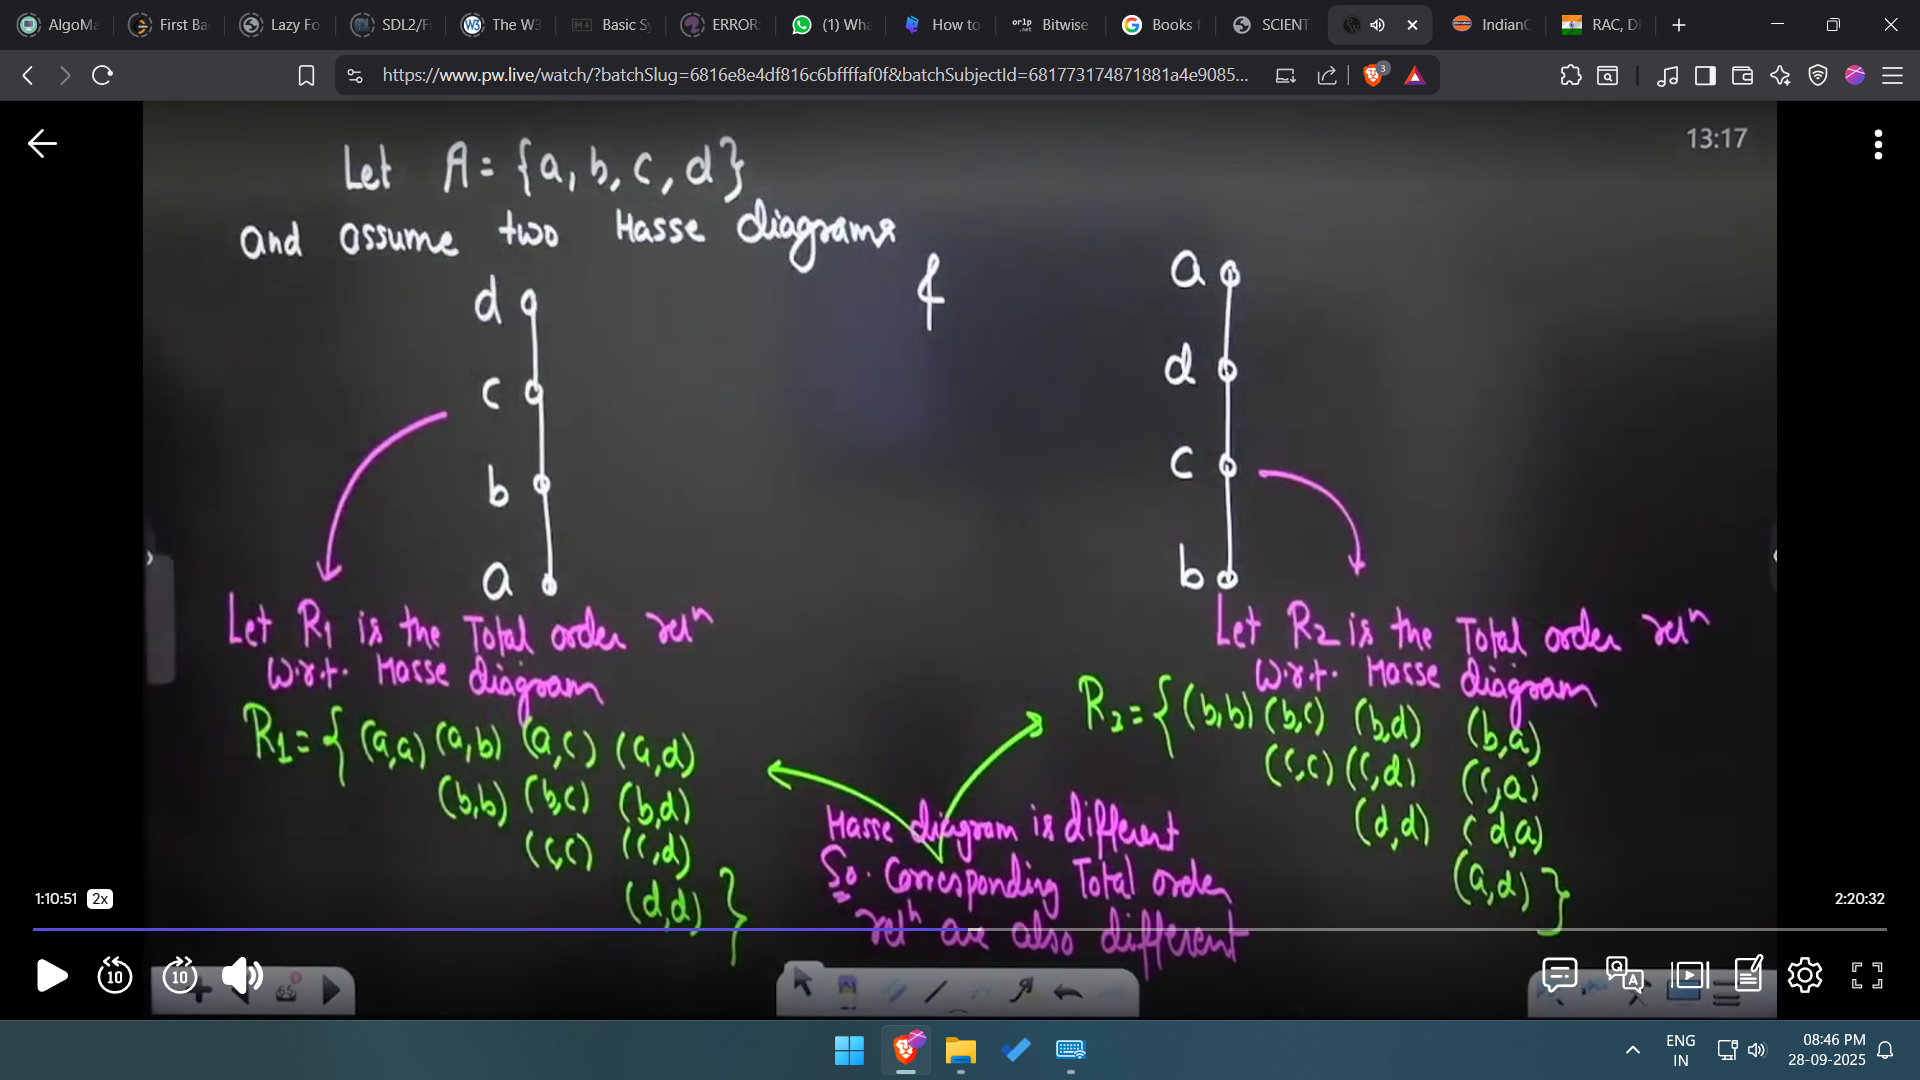 AlgoMa
First Ba
Lazy Fo
SDL2/Fr
The W3
Basic Sy
ERROR:
(1) Wha
How to
Bitwise
Books f
SCIENT
IndianC
RAC, D
https://www.pw.live/watch/?batchSlug=6816e8e4df816c6bffffaf0f&batchSubjectId=681773174871881a4e9085...
3
13:17
Let A = {a, b, c, d}
and assume two Hasse diagrams
d
c
b
a
&
a
d
c
b
Let R1 is the Total order relⁿ
w.r.t. Hasse diagram
R1 = { (a,a) (a,b) (a,c) (a,d)
(b,b) (b,c) (b,d)
(c,c) (c,d)
(d,d) }
Let R2 is the Total order relⁿ
w.r.t. Hasse diagram
R2 = { (b,b) (b,c) (b,d) (b,a)
(c,c) (c,d) (c,a)
(d,d) (d,a)
(a,d) }
Hasse diagram is different
So. Corresponding Total order
relⁿ are also different
1:10:51 2x
2:20:32
10
10
65
ENG
IN
08:46 PM
28-09-2025